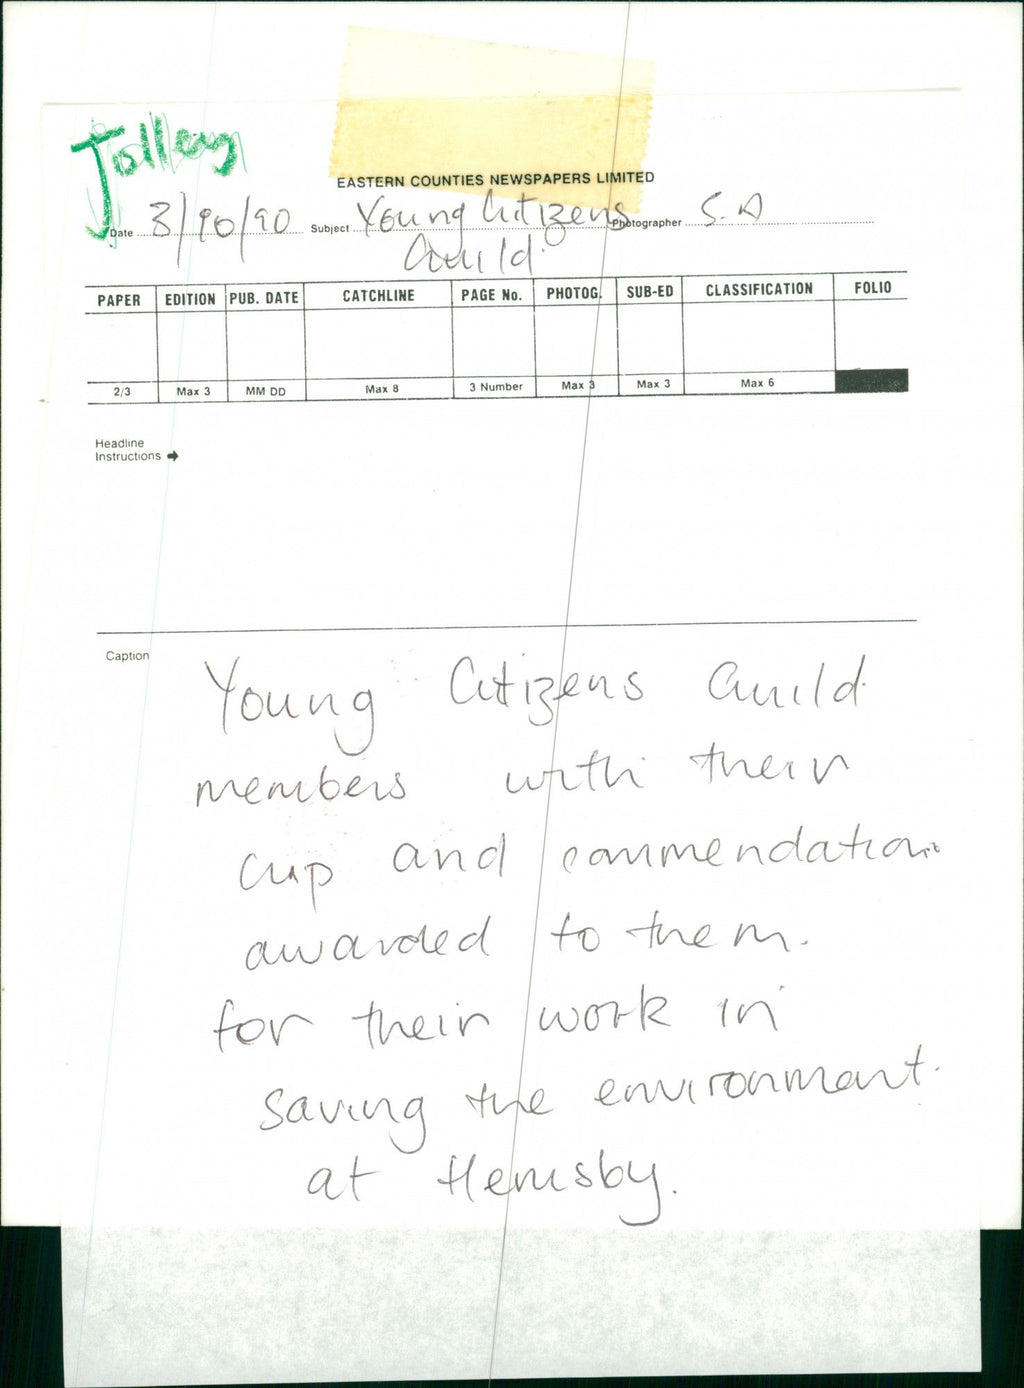 Jolley
EASTERN COUNTIES NEWSPAPERS LIMITED
Date 3/10/90 Subject Young Citizens Photographer S.A
Guild
PAPER EDITION PUB. DATE CATCHLINE PAGE No. PHOTOG. SUB-ED CLASSIFICATION FOLIO
2/3 Max 3 MM DD Max 8 3 Number Max 3 Max 3 Max 6
Headline
Instructions
Caption
Young Citizens Guild
members with their
cup and commendation
awarded to them.
for their work in
saving the environment.
at Hemsby.